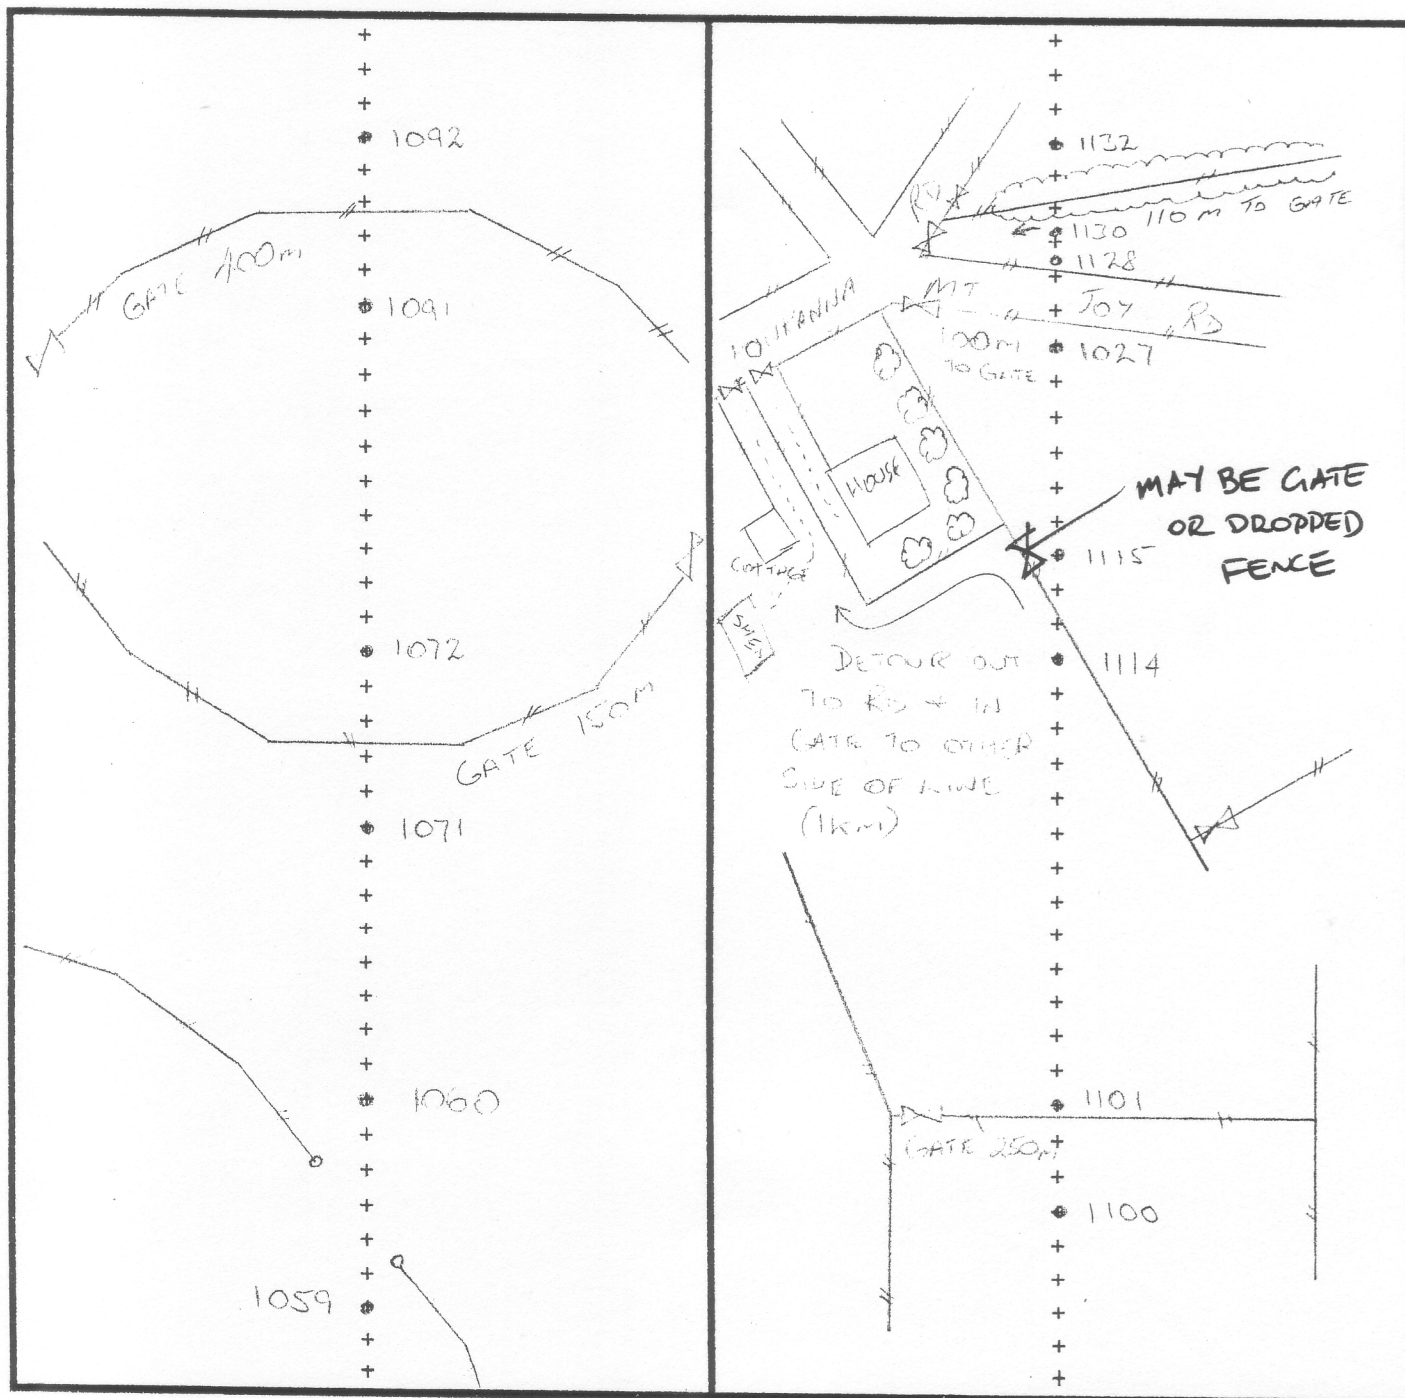 1092
GATE 400m
1091
1072
GATE 150M
1071
1060
1059
1132
RD
110 M TO GATE
1130
1128
MT JOY RD
100m
TO GATE
1027
HOUSE
MAY BE GATE
OR DROPPED
FENCE
1115
COTTAGE
DETOUR OUT
TO RD + IN
GATE TO OTHER
SIDE OF LINE
(1KM)
1114
1101
GATE 250M
1100